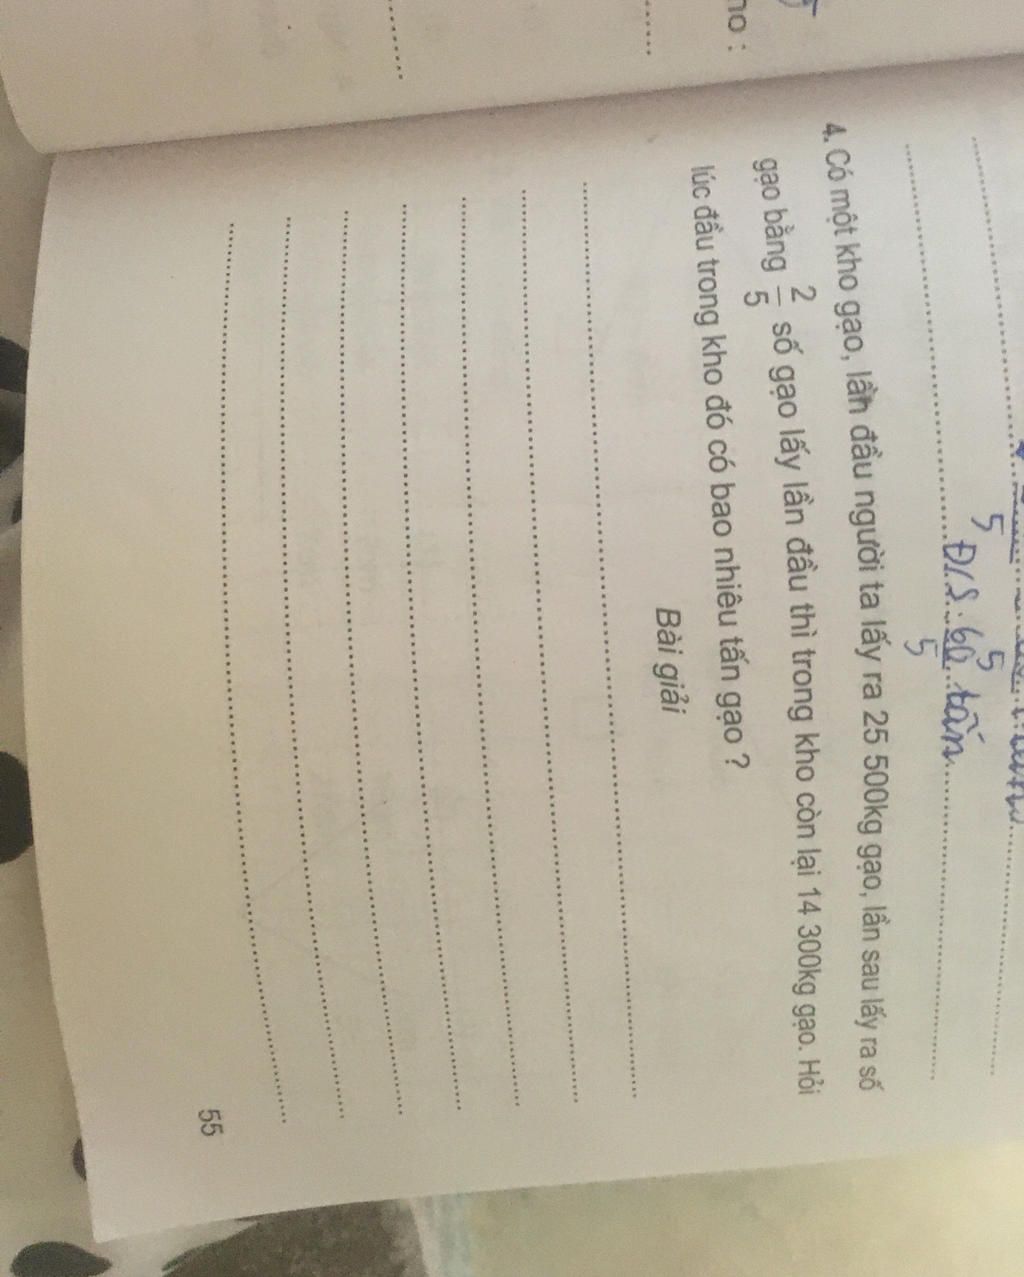 ho :
5 5
Đ/S : 60 tấn
5
4. Có một kho gạo, lần đầu người ta lấy ra 25 500kg gạo, lần sau lấy ra số
gạo bằng 2/5 số gạo lấy lần đầu thì trong kho còn lại 14 300kg gạo. Hỏi
lúc đầu trong kho đó có bao nhiêu tấn gạo ?
Bài giải
55